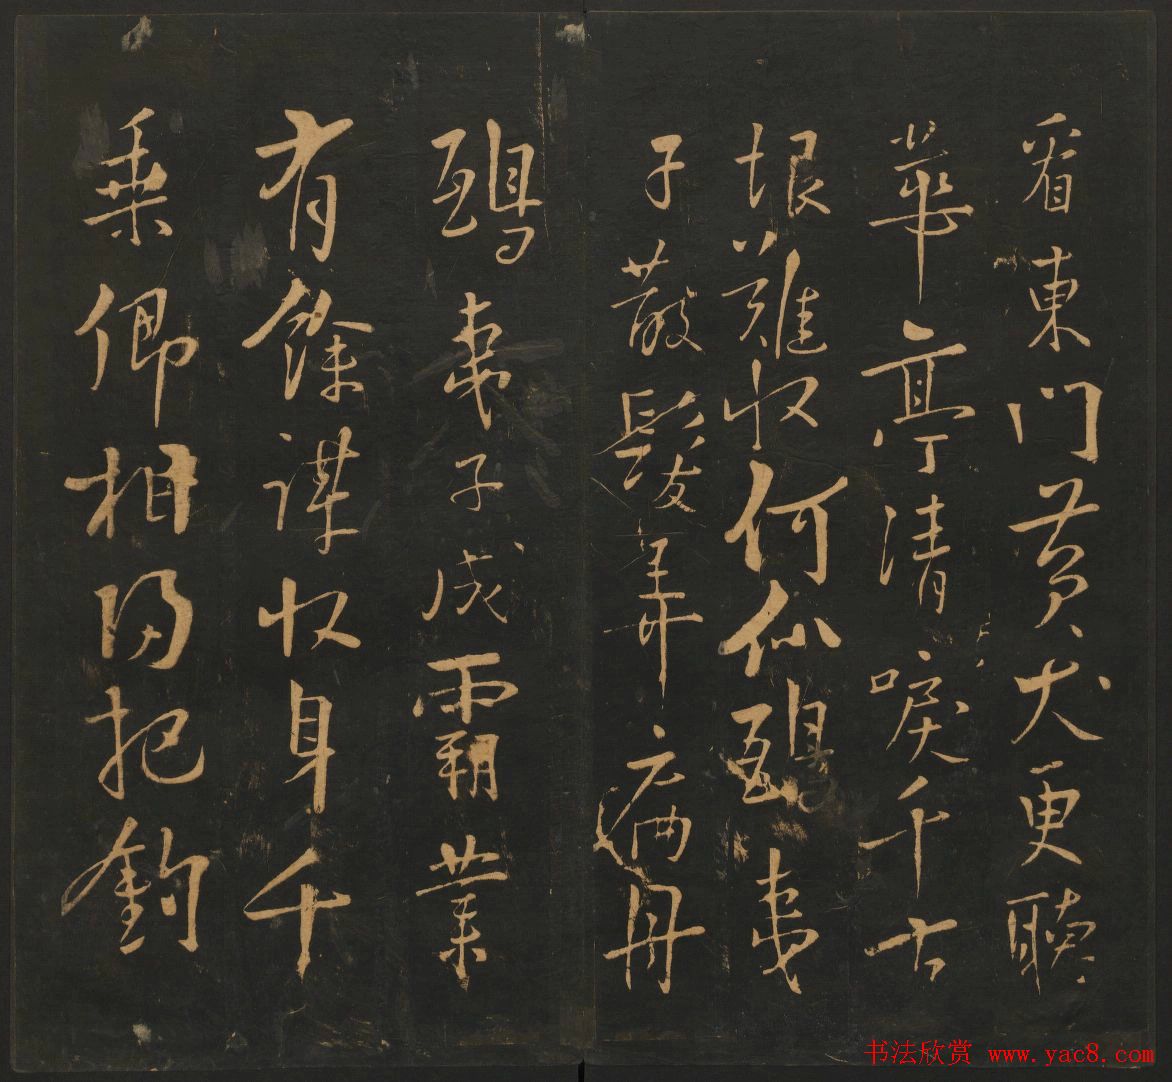 看東門黃犬更聽
華亭清唳千古
恨難收何似鴟夷
子散髮弄扁舟
鴟夷子成霸業
有餘謀收身千
乘卿相歸把釣
书法欣赏 www.yac8.com